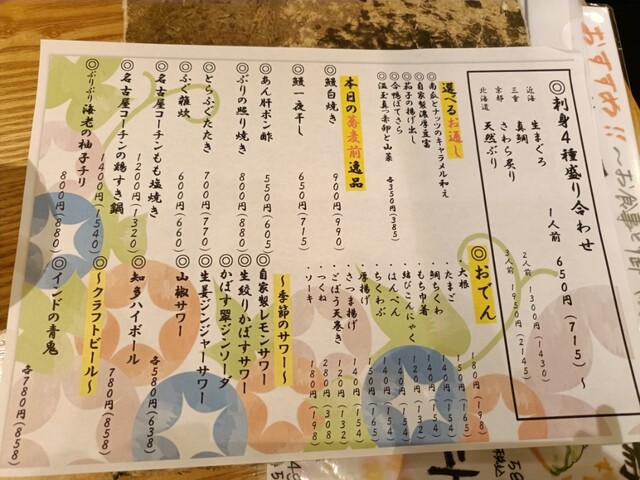 ◎刺身4種盛り合わせ
1人前 650円(715)〜
2人前 1300円(1430)
3人前 1950円(2145)
近海 生まぐろ
三重 真鯛
京都 さわら炙り
北海道 天然ぶり
選べるお通し
◎南瓜とナッツのキャラメル和え
◎自家製濃厚豆富
◎茄子の揚げ出し
◎合鴨ぱてさら
◎温玉真っ赤卵と山菜
各350円(385)
本日の蕎麦前逸品
◎鰻白焼き 900円(990)
◎鰻一夜干し 650円(715)
◎あん肝ポン酢 550円(605)
◎ぶりの照り焼き 800円(880)
◎とらふぐたたき 700円(770)
◎ふぐ雑炊 600円(660)
◎名古屋コーチンもも塩焼き 1200円(1320)
◎名古屋コーチンの鶏すき鍋 1400円(1540)
◎ぷりぷり海老の柚子チリ 800円(880)
◎おでん
・大根 180円(198)
・たまご 150円(165)
・鯛ちくわ 140円(154)
・もち巾着 140円(154)
・結びこんにゃく 120円(132)
・はんぺん 140円(154)
・ちくわぶ 150円(165)
・厚揚げ 140円(154)
・さつま揚げ 120円(132)
・ごぼう天巻き 140円(154)
・つくね 280円(308)
・ソーキ 180円(198)
〜季節のサワー〜
◎自家製レモンサワー
◎生絞りかぼすサワー
◎かぼす翠ジンソーダ
◎生姜ジンジャーサワー
◎山椒サワー
各580円(638)
◎知多ハイボール 780円(858)
〜クラフトビール〜
◎インドの青鬼
各780円(858)
おすすめ!!
〜お食事